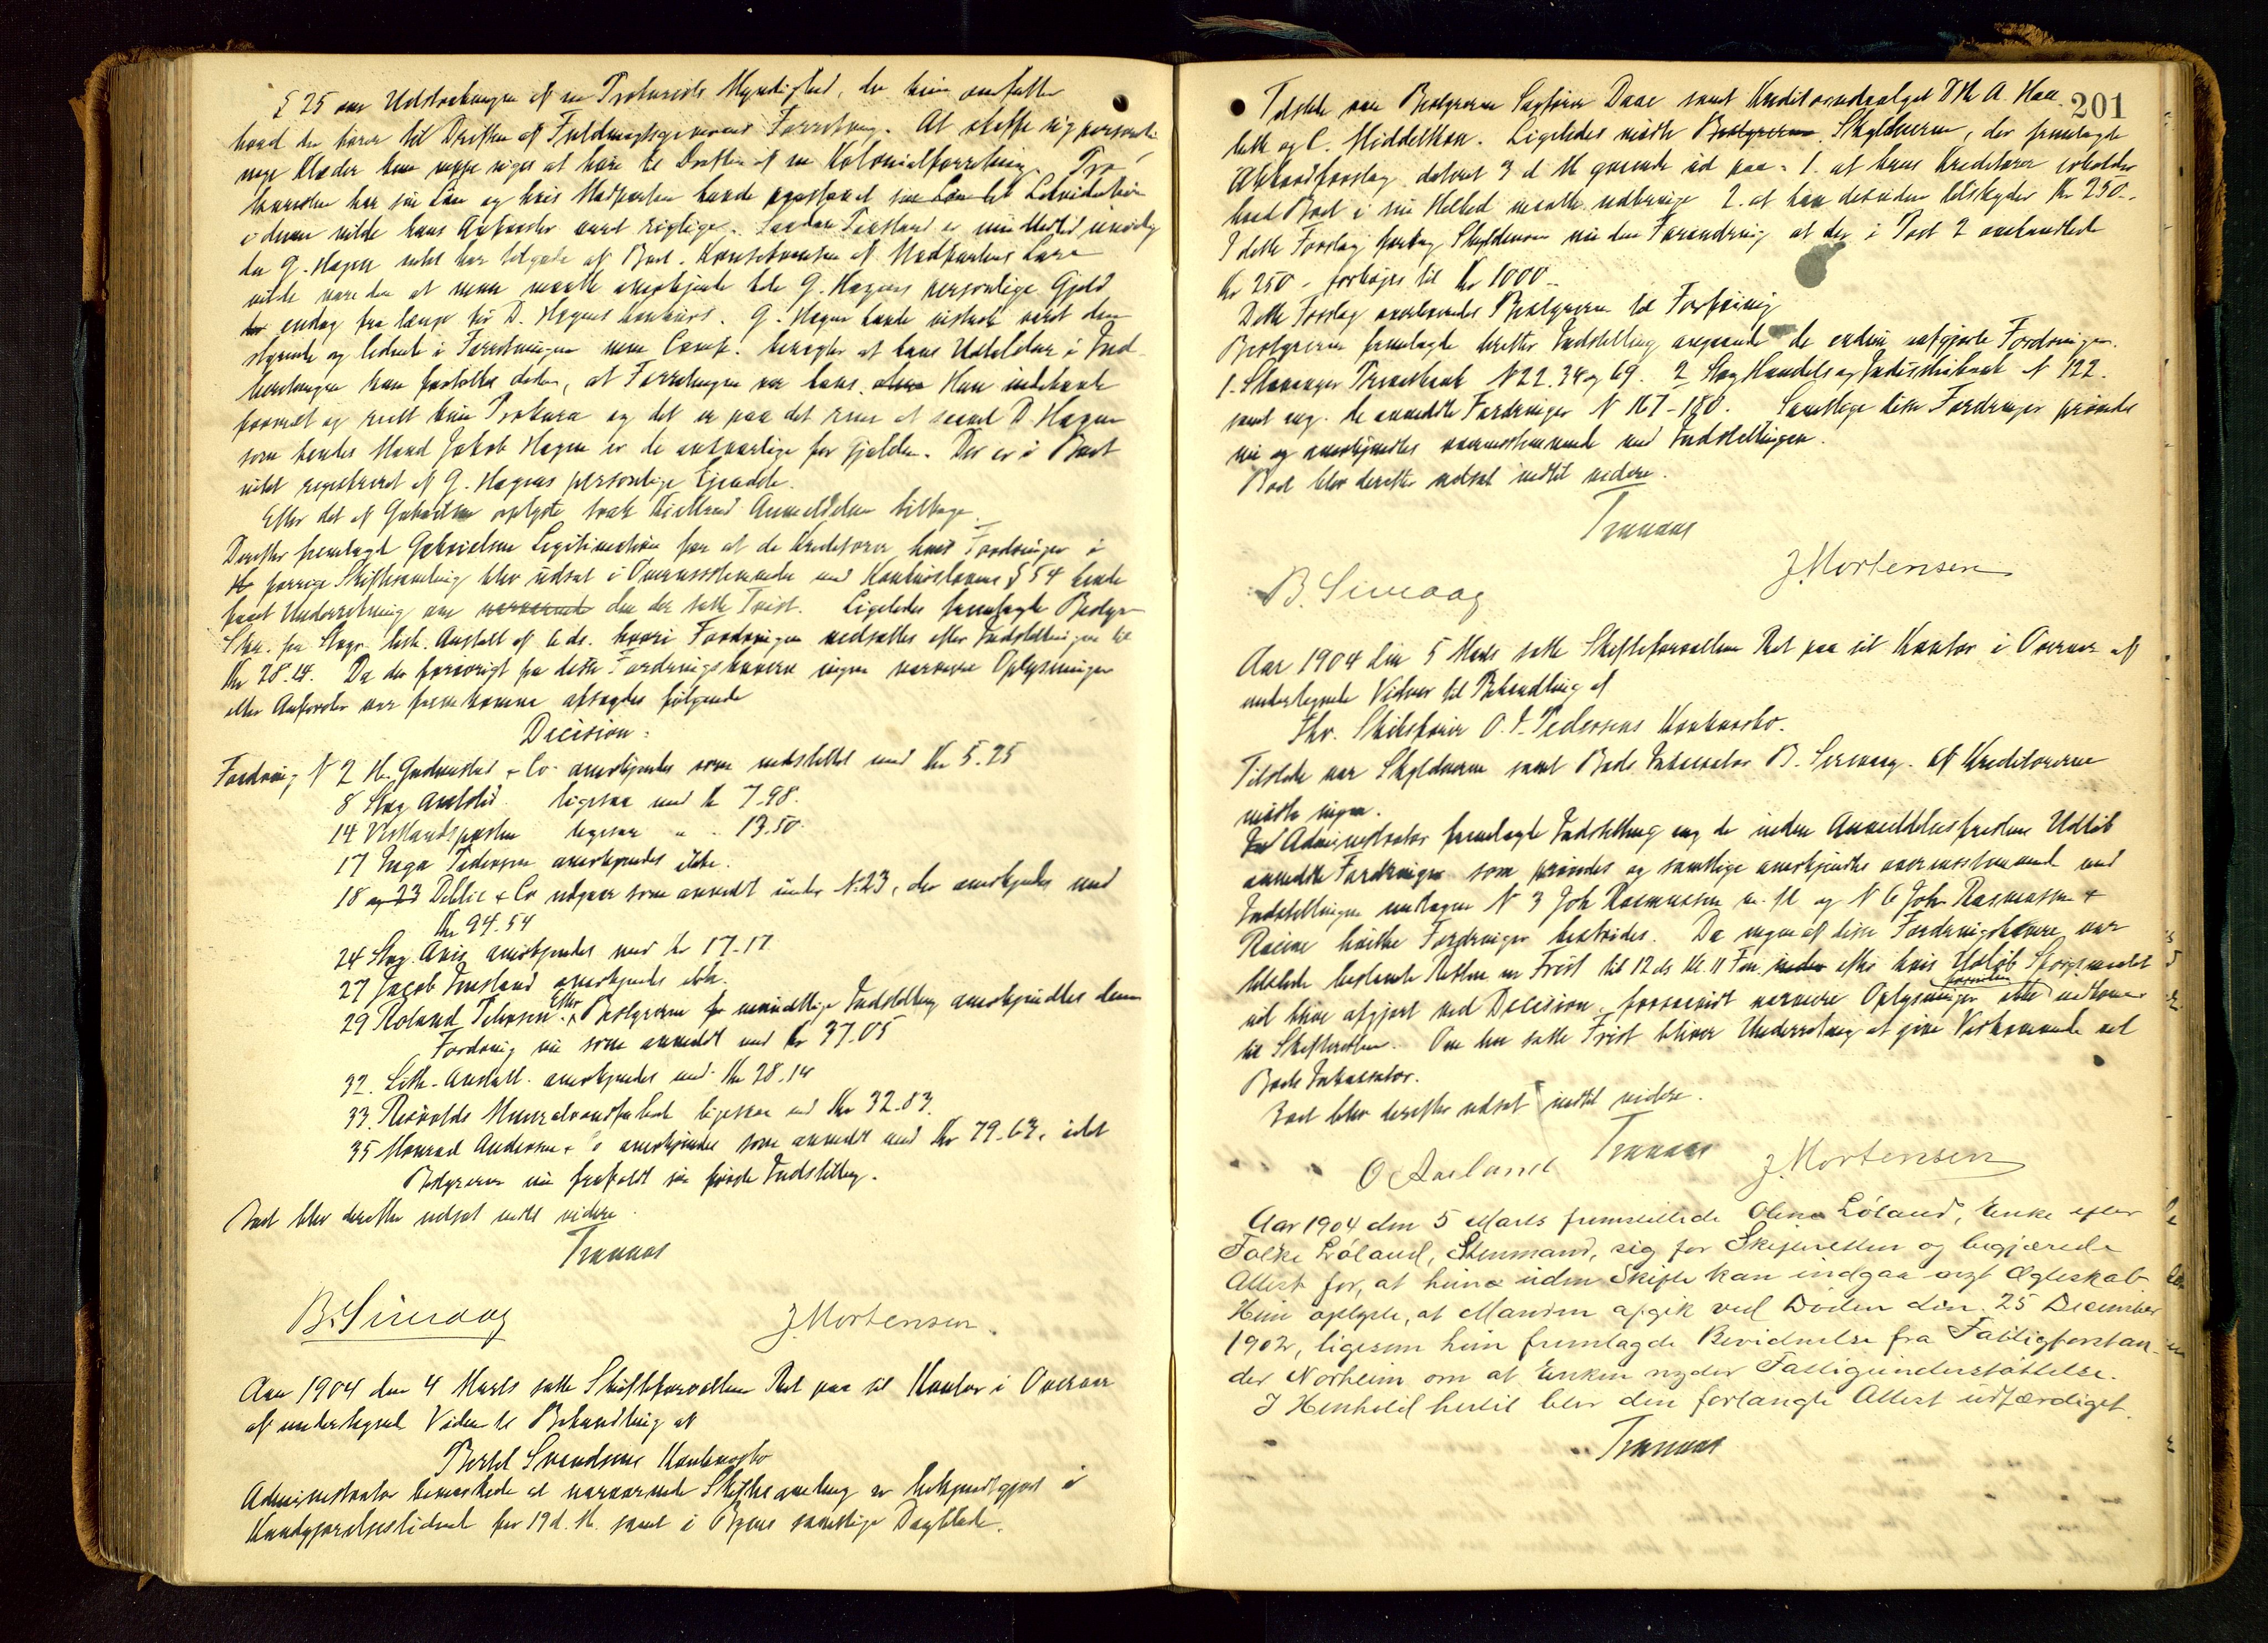 § 25 om Udstrækningen af en Prokurists Myndighed, der kun omfatter
hvad der hører til Driften af Fuldmagtsgiverens Forretning. At skaffe sig personlig
nye Klæder kan neppe siges at høre til Driften af en Kolonialforretning. Pro-
kuristen har sin Løn og hvis Modparten havde paastaaet sin Løn til Likvidation
i denne vilde hans Anførsler været rigtige. Saadan Paastand er imidlertid umulig
da G. Hagen intet har tilgode af Boet. Konsekvensen af Modpartens Lære
vilde være den at man maatte anerkjende hele G. Hagens personlige Gjæld
endog fra længe før D. Hagens Konkurs. G. Hagen havde vistnok været den
styrende og ledende i Forretningen men
kan fortolke derhen, at Forretningen var hans. Han indehavde
forøvrigt kun Prokura og det er paa det rene at saavel D. Hagen
som hendes Mand Jakob Hagen er de ansvarlige for Gjælden. Der er i Boet
intet registreret af G. Hagens personlige Eiendele.
Efter det af Gabrielsen oplyste trak Kielland Anmeldelsen tilbage.
Derefter fremlagde Gabrielsen Legitimation for at de Kreditorer hvis Fordringer i
forrige Skiftesamling blev udsat i Overensstemmelse med Konkurslovens § 54 havde
faaet Underretning om den der satte Frist. Ligeledes fremlagde Bestyr-
Skr. fra Stvgr. lith. Anstalt af 6 ds. hvori Fordringen nedsættes efter Indstillingen til
Kr 28.14. Da der forøvrigt fra disse Fordringshavere ingen nærmere Oplysninger
eller Anførsler var fremkomne afsagdes følgende
Decision:
Fordring N 2 H. Gudmestad & Co. anerkjendes som indstillet med Kr 5.25
8 Stvg Avholds. ligesaa med Kr 7.98.
14 Vestlandsposten ligesaa " - 13.50.
17 Inga Pedersen anerkjendes ikke.
18 og 23 & Co udgaar som anmeldt under N. 23, der anerkjendes med
Kr 94.54
24 Stvg. Avis anerkjendes med Kr 17.17
27 Jacob anerkjendes ikke.
29 Roland Efter Bestyrerens mundtlige Indstilling anerkjendtes denne
Fordring nu som anmeldt med Kr 37.05
32. Lith. Anstalt. anerkjendes med Kr 28.14
33. Mineralvandfabrik ligesaa med Kr 32.03.
35 Konrad Andersen & Co anerkjendes som anmeldt med Kr 79.63, idet
Bestyreren nu frafaldt sin førte Indstilling.
Boet blev derefter udsat indtil videre.
Tranaas
B. Simaag J. Mortensen.
Aar 1904 den 4 Marts satte Skifteforvalteren Ret paa sit Kontor i Overvær
af undertegnet Vidne til Behandling af
Bertel Svendsens Konkursbo
Administrator bemærkede at nærværende Skiftesamling er bekjendtgjort i
Kundgjørelsestidende for 19 d. M. samt i Byens samtlige Dagblade.
201
Tilstede var Bestyreren Sagfører Daae samt Kreditorudvalget A. Haa-
og C. Middelthon. Ligeledes mødte Bestyreren Skyldneren, der fremlagde
Akkordforslag dateret 3 d M gaaende ud paa: 1. at hans Kreditorer erholder
hvad Boet i sin Helhed maatte udbringe 2. at han desuden tilskyder Kr 250.-.
I dette Forslag foretog Skyldneren nu den Forandring at der i Post 2 omhandlede
Kr 250 - forhøies til Kr 1000 -
Dette Forslag overleveredes Bestyreren til Forføining
Bestyreren fremlagde derefter Indstilling angaaende de endnu uafgjorte Fordringer.
1. Stavanger Privatbank N 22. 34 og 69. 2 Stvg Handels og Industribank N 122.
samt ang. de anmeldte Fordringer N 167 - 180. Samtlige disse Fordringer prøvedes
nu og anerkjendtes overensstemmende med Indstillingen.
Boet blev derefter udsat indtil videre.
Tranaas
B. Simaag J. Mortensen
Aar 1904 den 5 Marts satte Skifteforvalteren Ret paa sit Kontor i Overvær af
undertegnede Vidner til Behandling af
Fhv. Skibsfører O. T. Pedersens Konkursbo.
Tilstede var Skyldneren samt Boets Inkassator B. Simaag. Af Kreditorerne
mødte ingen.
Administrator fremlagde Indstilling ang de inden Anmeldelsesfristens Udløb
anmeldte Fordringer som prøvedes og samtlige anerkjendtes overensstemmende med
Indstillingen undtagen N 3 Joh Rasmussen og N 6 Joh Rasmussen &
Racine hvilke Fordringer bestrides. Da ingen af disse Fordringshavere var
tilstede bestemte Retten en Frist til 12 ds Kl. 11 Fm. efter hvis Udløb Spørgsmaalet
vil blive afgjort ved Decision forsaavidt nærmere Oplysninger forinden ikke indkommer
til Skifteretten. Om den satte Frist bliver Underretning at give Vedkommende ved
Boets Inkassator.
Boet blev derefter udsat indtil videre.
Tranaas
O Aasland J. Mortensen
Aar 1904 den 5 Marts fremstillede Olena Løland, Enke efter
Tolke Løland, Stenmand, sig for Skifteretten og begjærede
Attest for, at hun uden Skifte kan indgaa nyt Ægteskab.
Hun oplyste, at Manden afgik ved Døden den 25 December
1902, ligesom hun fremlagde Bevidnelse fra Fattigforstan-
der Norheim om at Enken nyder Fattigunderstøttelse.
I Henhold hertil blev den forlangte Attest udfærdiget.
Tranaas